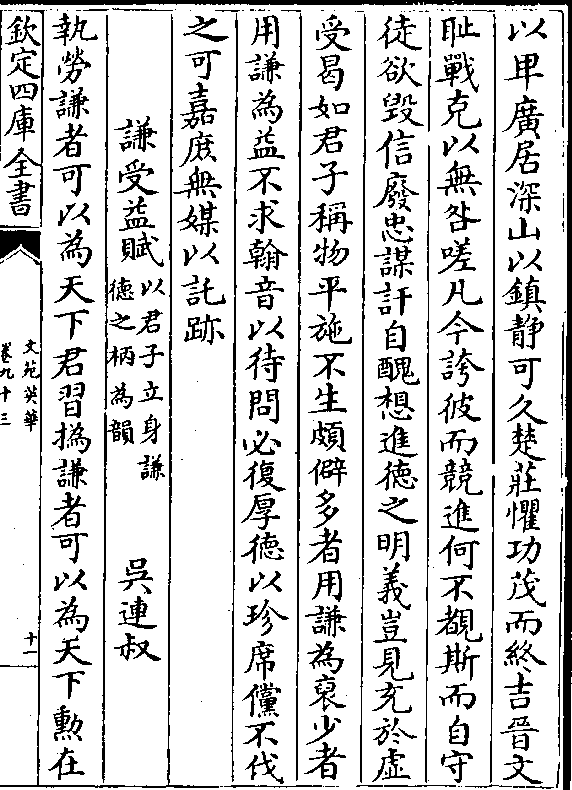 以卑廣居深山以鎮静可久楚莊懼功茂而終吉晉文
耻戰克以無咎嗟凡今誇彼而競進何不覩斯而自守
徒欲毀信廢忠謀訐自醜想進德之明義豈見充於虛
受曷如君子稱物平施不生頗僻多者用謙為裒少者
用謙為益不求翰音以待問必復厚德以珍席儻不伐
之可嘉庶無媒以託跡
謙受益賦 以君子立身謙德之柄為韻 吳連叔
執勞謙者可以為天下君習撝謙者可以為天下勲在
欽定四庫全書
文苑英華
卷九十三
十一